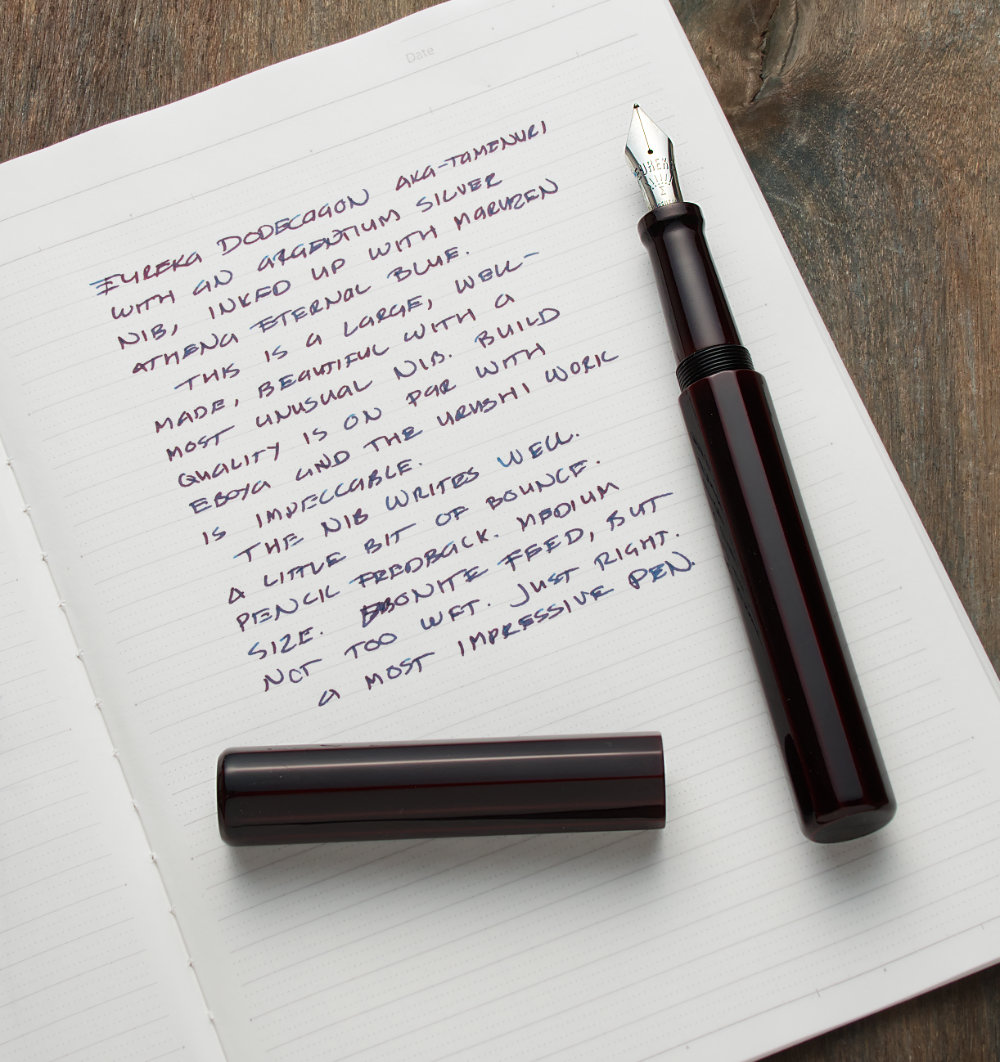 Date
EUREKA DODECAGON AKA-TAMENURI
WITH AN ARGENTIUM SILVER
NIB, INKED UP WITH MARUZEN
ATHENA ETERNAL BLUE.
THIS IS A LARGE, WELL-
MADE, BEAUTIFUL WITH A
MOST UNUSUAL NIB. BUILD
QUALITY IS ON PAR WITH
EBOYA AND THE URUSHI WORK
IS IMPECCABLE.
THE NIB WRITES WELL.
A LITTLE BIT OF BOUNCE.
PENCIL FEEDBACK. MEDIUM
SIZE. EBONITE FEED, BUT
NOT TOO WET. JUST RIGHT.
A MOST IMPRESSIVE PEN.
EUREKA